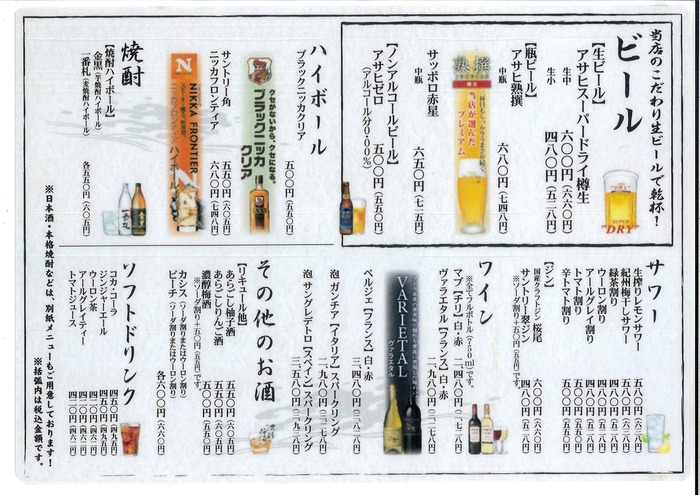 当店のこだわり生ビールで乾杯!
ビール
【生ビール】
アサヒスーパードライ樽生
生中 六〇〇円(六六〇円)
生小 四八〇円(五二八円)
【瓶ビール】
アサヒ熟撰
中瓶 六八〇円(七四八円)
熟撰
当店が選んだ
プレミアム
サッポロ赤星
中瓶 六五〇円(七一五円)
【ノンアルコールビール】
アサヒゼロ 五〇〇円(五五〇円)
(アルコール分0.00%)
SUPER "DRY"
ハイボール
ブラックニッカクリア
五〇〇円(五五〇円)
クセがないから、クセになる。
ブラックニッカ
クリア
サントリー角 五五〇円(六〇五円)
ニッカフロンティア 六八〇円(七四八円)
NIKKA FRONTIER
ニッカフロンティアハイボール
焼酎
【焼酎ハイボール】
金黒(芋焼酎ハイボール)
一番札(麦焼酎ハイボール)
各五五〇円(六〇五円)
サワー
生搾りレモンサワー 五八〇円(六三八円)
紀州梅干しサワー 五八〇円(六三八円)
緑茶割り
ウーロン割り
アールグレイ割り
トマト割り
辛トマト割り
【ジン】
国産クラフトジン 桜尾 六〇〇円(六六〇円)
サントリー翠ジン
※ソーダ割り+五〇円(五五円)です。
ワイン
※全てフルボトル(750ml)です。
マプ【チリ】白・赤
ヴァラエタル【フランス】白・赤
VARIETAL
ヴァラエタル
ベルジェ【フランス】白・赤
泡 ガンチア【イタリア】スパークリング
泡 サングレデトロ【スペイン】スパークリング
その他のお酒
【リキュール他】
あらごし柚子酒 五五〇円(六〇五円)
あらごしりんご酒 五五〇円(六〇五円)
濃醇梅酒 五〇〇円(五五〇円)
※ソーダ割り+五〇円(五五円)です。
カシス(ソーダ割りまたはウーロン割り)
ピーチ(ソーダ割りまたはウーロン割り)
各六〇〇円(六六〇円)
ソフトドリンク
コカ・コーラ 四五〇円(四九五円)
ジンジャーエール
ウーロン茶
アールグレイティー
トマトジュース
※日本酒・本格焼酎などは、別紙メニューもご用意しております!
※括弧内は税込金額です。